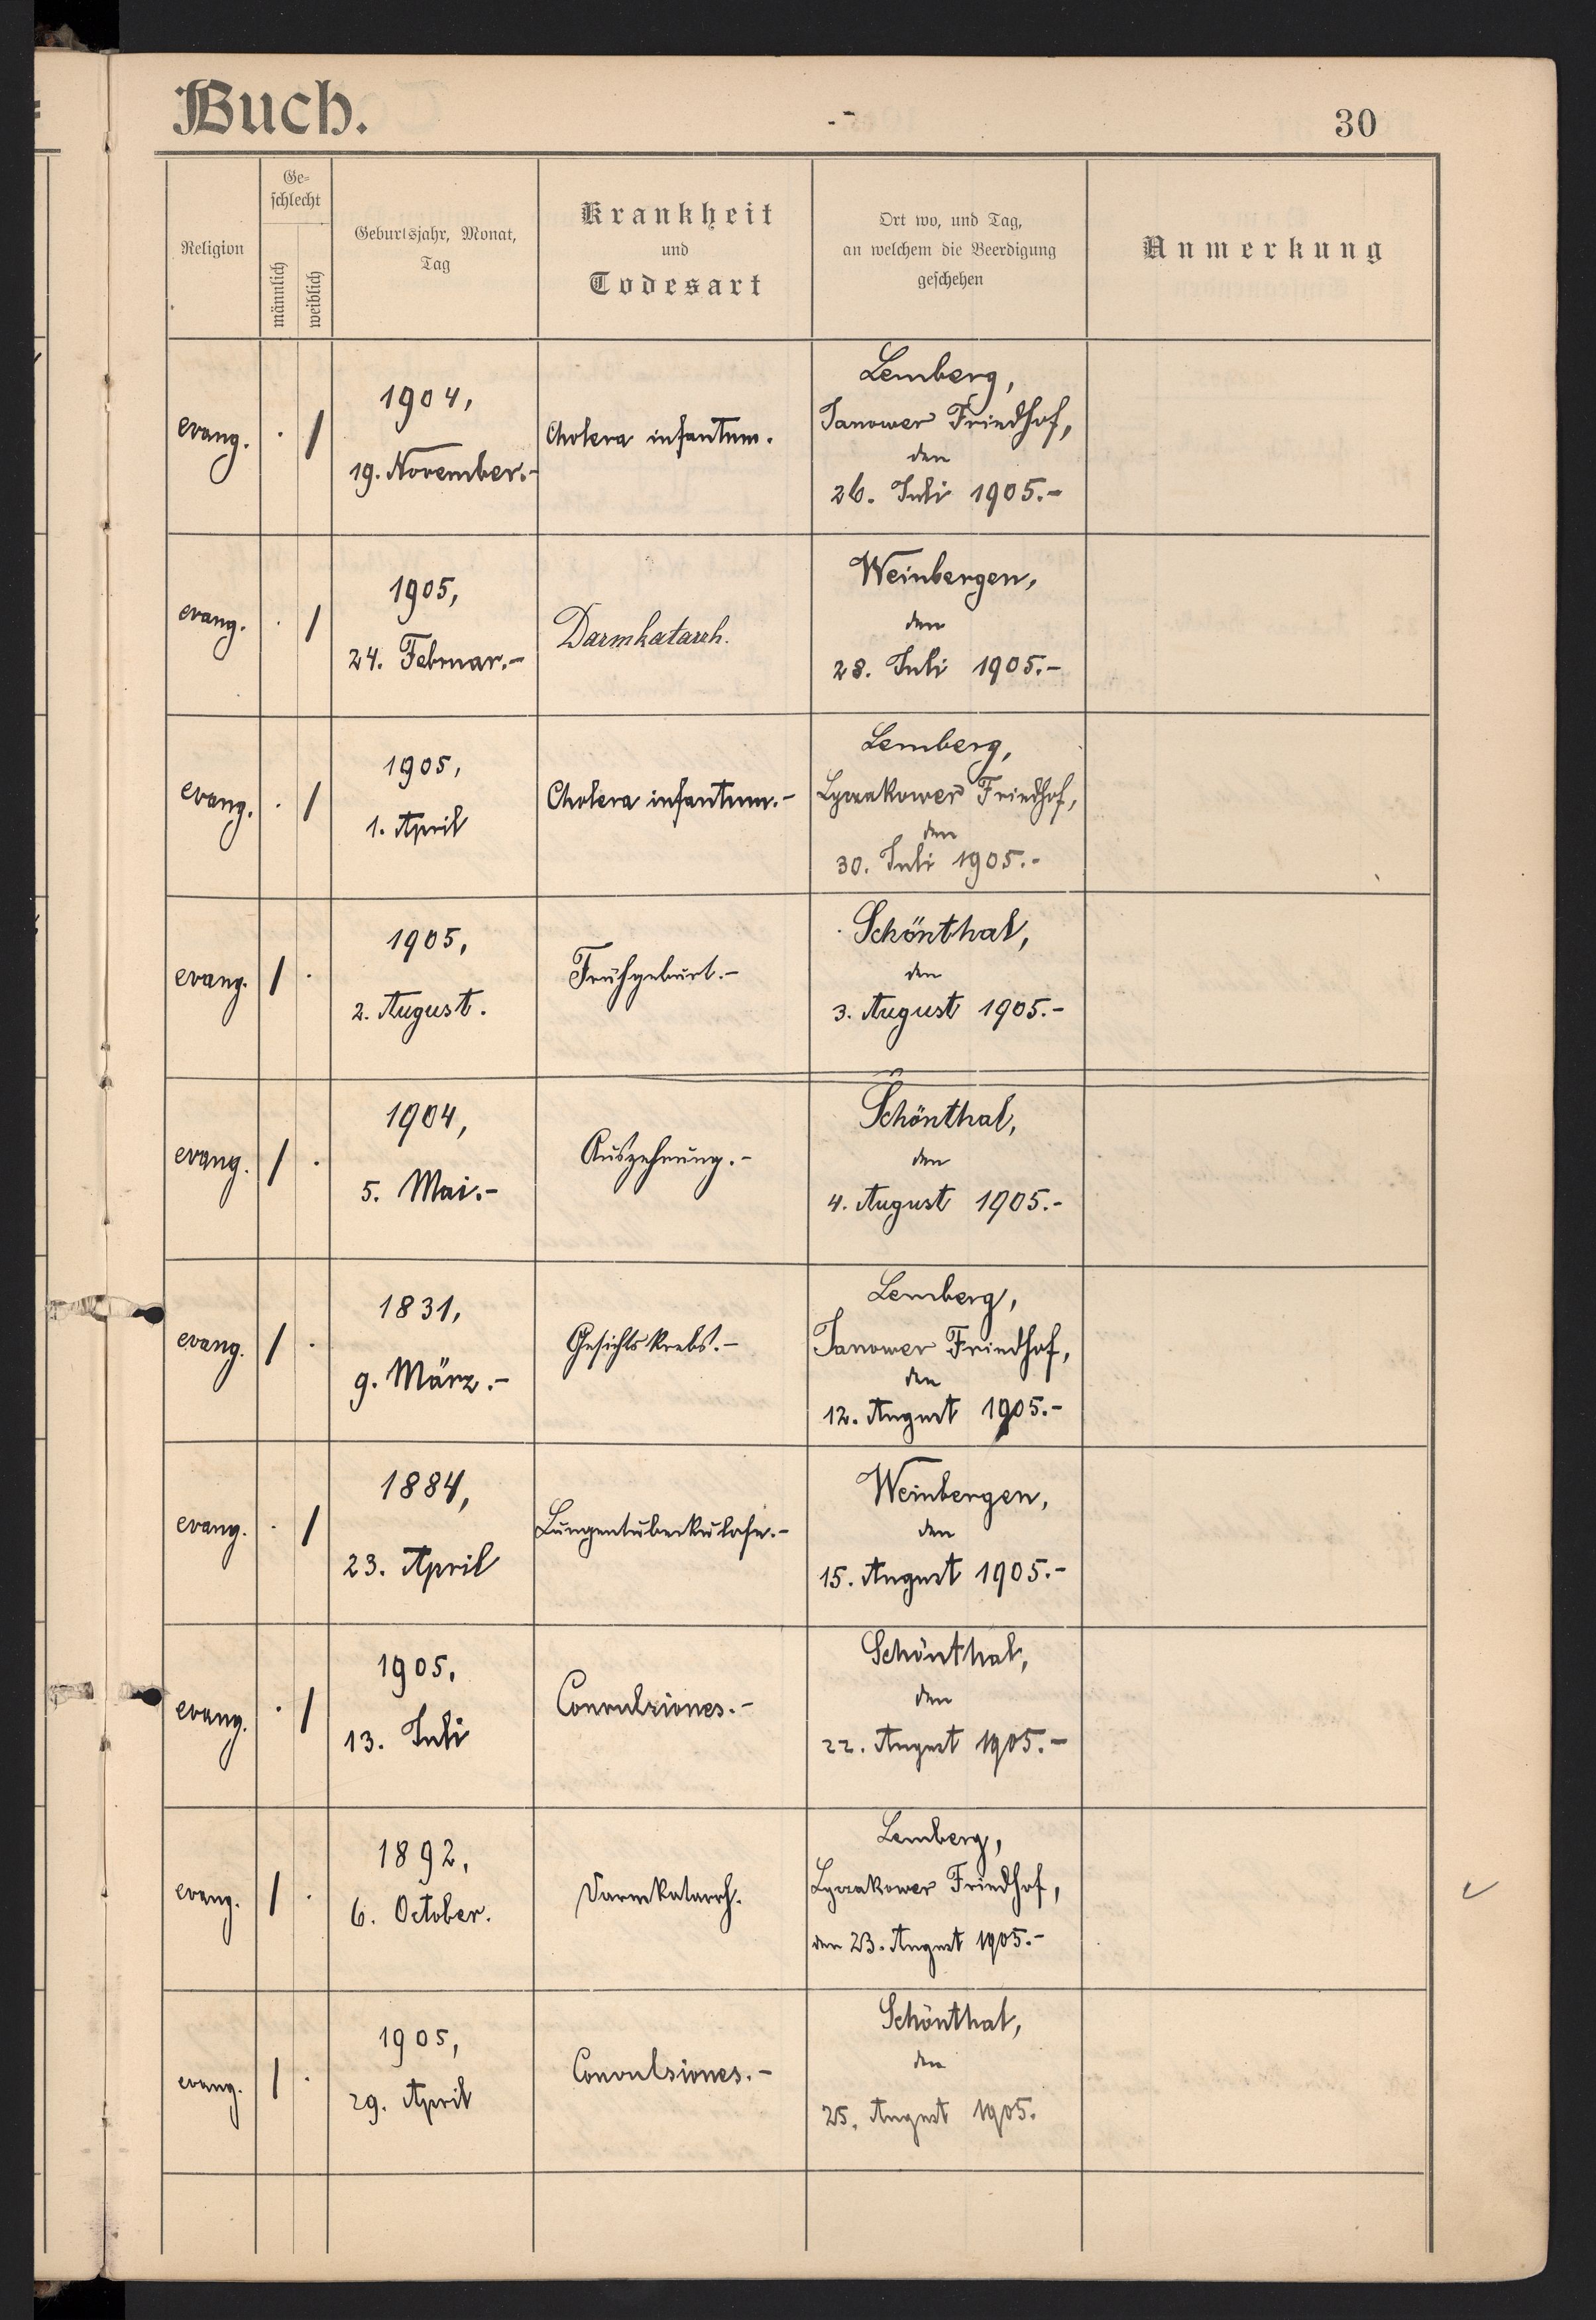 Buch.
30
Religion
Ge=
schlecht
männlich
weiblich
Geburtsjahr, Monat,
Tag
Krankheit
und
Todesart
Ort wo, und Tag,
an welchem die Beerdigung
geschehen
Anmerkung
evang. . /
1904,
19. November.-
Cholera infantum.
Lemberg,
Janower Friedhof,
den
26. Juli 1905.-
evang. . /
1905,
24. Februar.-
Darmkatarrh.
Weinbergen,
den
28. Juli 1905.-
evang. . /
1905,
1. April
Cholera infantum.-
Lemberg,
Lyczakower Friedhof,
den
30. Juli 1905.-
evang. / .
1905,
2. August.
Frühgeburt.-
Schönthal,
den
3. August 1905.-
evang. / .
1904,
5. Mai.-
Auszehrung.-
Schönthal,
den
4. August 1905.-
evang. / .
1831,
9. März.-
Gesichtskrebs.-
Lemberg,
Janower Friedhof,
den
12. August 1905.-
evang. . /
1884,
23. April
Lungentuberkulose.-
Weinbergen,
den
15. August 1905.-
evang. . /
1905.
13. Juli
Convulsiones.-
Schönthal,
den
22. August 1905.-
evang. / .
1892,
6. October.
Darmkatarrh.
Lemberg,
Lyczakower Friedhof,
den 23. August 1905.-
evang. / .
1905,
29. April
Convulsiones.-
Schönthal,
den
25. August 1905.